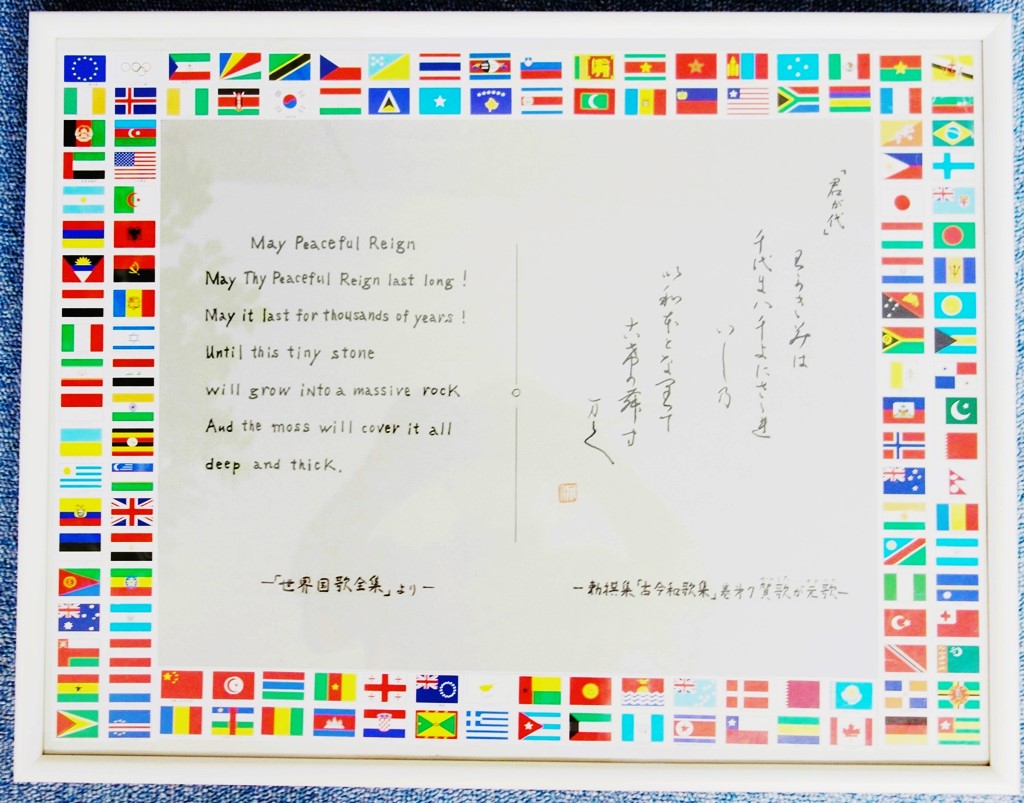 May Peaceful Reign
May Thy Peaceful Reign last long !
May it last for thousands of years !
Until this tiny stone
will grow into a massive rock
And the moss will cover it all
deep and thick.
—「世界国歌全集」より—
「君が代」
わがきみは
千代尓八千よにさゞれ
いし乃
以和本となりて
万で
—勅撰集「古今和歌集」巻才7賀歌が元歌—